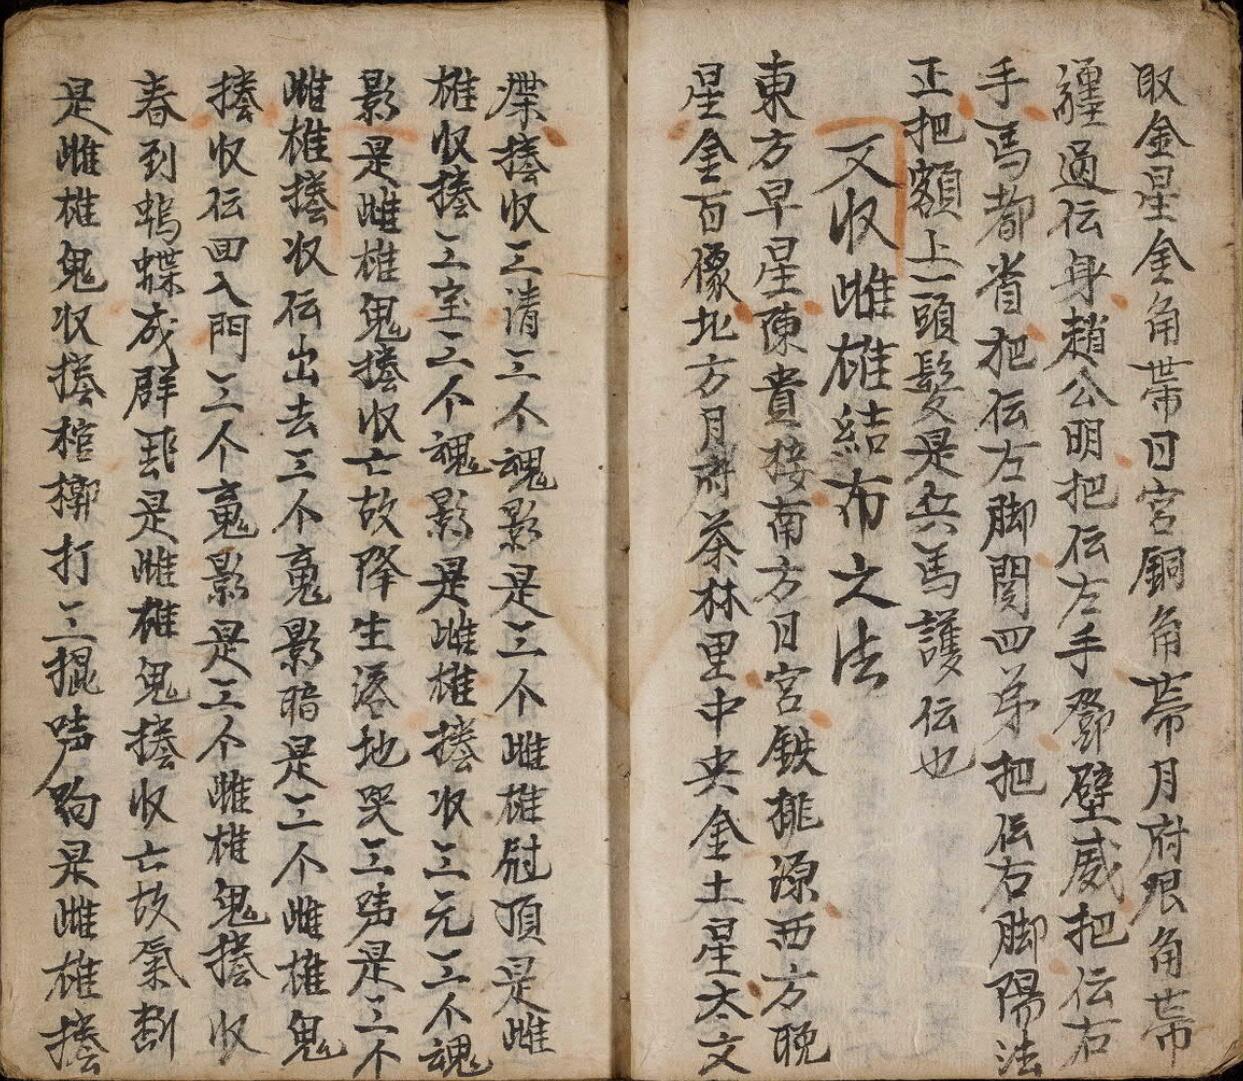 取金星金角带日宮銅角带月府艮角带
纏過伝身趙公明把伝左手鄧壁威把伝右
手馬都省把伝左脚関四弟把伝右脚陽法
正把額上一頭髮是兵馬護伝也
又收雌雄結布之法
東方早星陳貴接南方日宮鉄桃源西方晚
星金百像北方月府茶林里中央金土星太文
搽收三清三个魂影是三个雌雄尉頂是雌
雄收搽三宝三个魂影是雌雄搽收三元三个魂
影是雌雄鬼搽收亡故降生落地哭三声是三个
雌雄搽收伝出去三个鬼影暗是三个雌雄鬼
搽收伝回入門三个鬼影是三个雌雄鬼搽收
春到蝴蝶成群飛是雌雄鬼搽收亡故氣斷
是雌雄鬼收搽棺槨打三掍声狗是雌雄搽